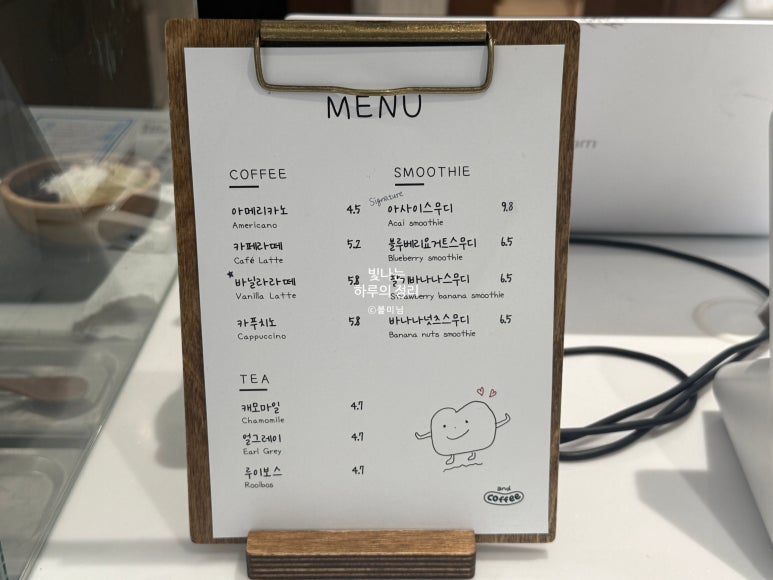 MENU
COFFEE
아메리카노 4.5
Americano
카페라떼 5.2
Café Latte
바닐라라떼 5.8
Vanilla Latte
카푸치노 5.8
Cappuccino
TEA
캐모마일 4.7
Chamomile
얼그레이 4.7
Earl Grey
루이보스 4.7
Rooibos
SMOOTHIE
Signature
아사이스무디 9.8
Acai smoothie
블루베리요거트스무디 6.5
Blueberry smoothie
딸기바나나스무디 6.5
Strawberry banana smoothie
바나나넛츠스무디 6.5
Banana nuts smoothie
and
coffee
빛나는
하루의 정리